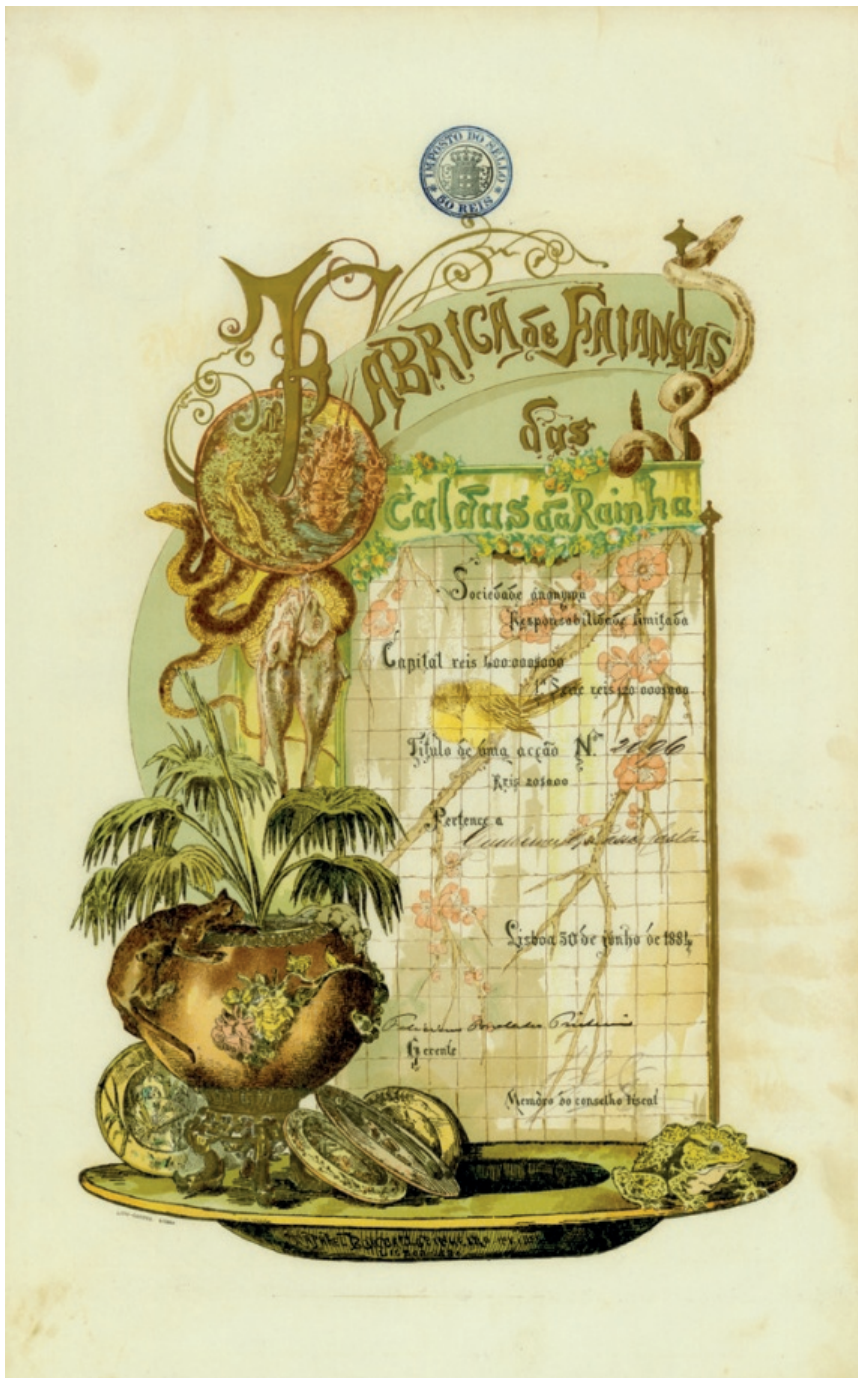 IMPOSTO DO SELLO
50 REIS
FABRICA de FAIANÇAS
das
Caldas da Rainha
Sociedade anonyma
Responsabilidade limitada
Capital reis
1ª Serie reis
Titulo de uma acção N.º 2096
Reis 20$000
Pertence a
Lisboa 30 de junho de 1884
Gerente
Membro do conselho fiscal